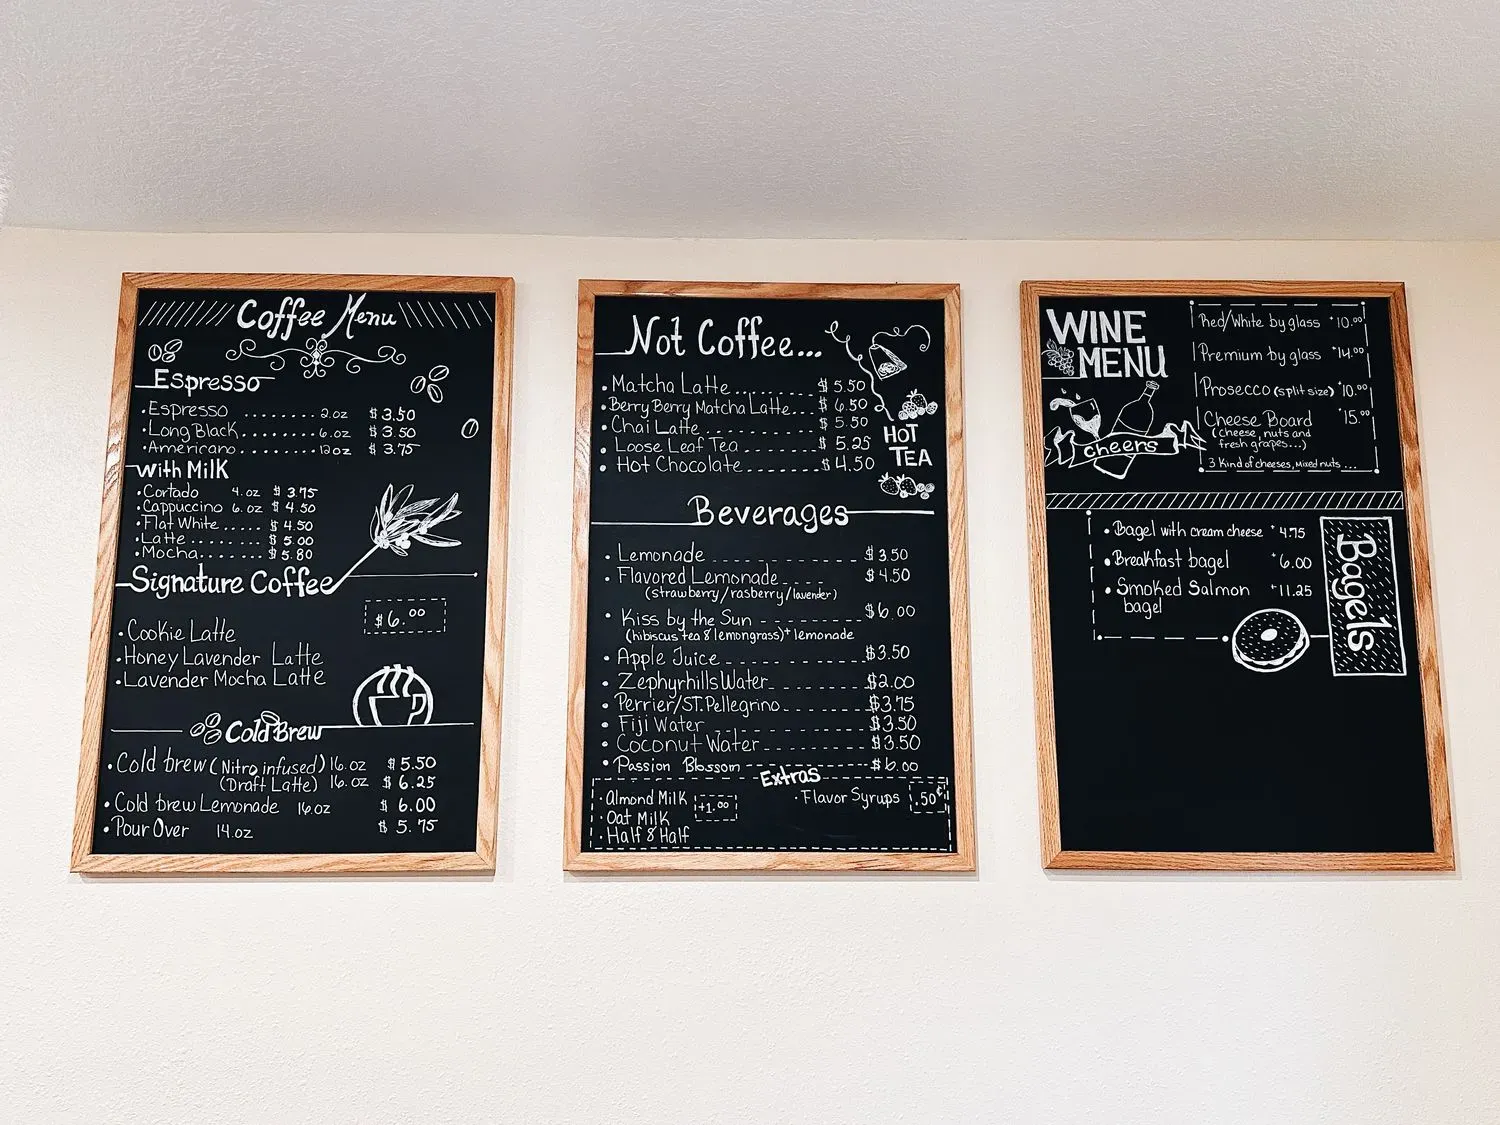 Coffee Menu
Espresso
• Espresso ........ 2.oz $3.50
• Long Black ........ 6.oz $3.50
• Americano ........ 12oz $3.75
with Milk
• Cortado 4.oz $3.75
• Cappuccino 6.oz $4.50
• Flat White ..... $4.50
• Latte ........ $5.00
• Mocha ........ $5.80
Signature Coffee
$6.00
• Cookie Latte
• Honey Lavender Latte
• Lavender Mocha Latte
Cold Brew
• Cold brew (Nitro infused) 16.oz $5.50
(Draft Latte) 16.oz $6.25
• Cold brew Lemonade 16oz $6.00
• Pour Over 14.oz $5.75
Not Coffee...
• Matcha Latte ........ $5.50
• Berry Berry Matcha Latte... $6.50
• Chai Latte ........ $5.50
• Loose Leaf Tea ........ $5.25
• Hot Chocolate ........ $4.50
HOT
TEA
Beverages
• Lemonade $3.50
• Flavored Lemonade $4.50
(strawberry/rasberry/lavender)
• Kiss by the Sun $6.00
(hibiscus tea & lemongrass)+ lemonade
• Apple Juice $3.50
• Zephyrhills Water $2.00
• Perrier/ST. Pellegrino $3.75
• Fiji Water $3.50
• Coconut Water $3.50
• Passion Blossom $6.00
Extras
• Almond Milk +1.00
• Oat Milk
• Half & Half
• Flavor Syrups .50¢
WINE
MENU
cheers
Red/White by glass 10.00
Premium by glass 14.00
Prosecco (split size) 10.00
Cheese Board 15.00
(cheese, nuts and
fresh grapes...)
3 Kind of cheeses, mixed nuts ...
• Bagel with cream cheese 4.75
• Breakfast bagel 6.00
• Smoked Salmon 11.25
bagel
Bagels